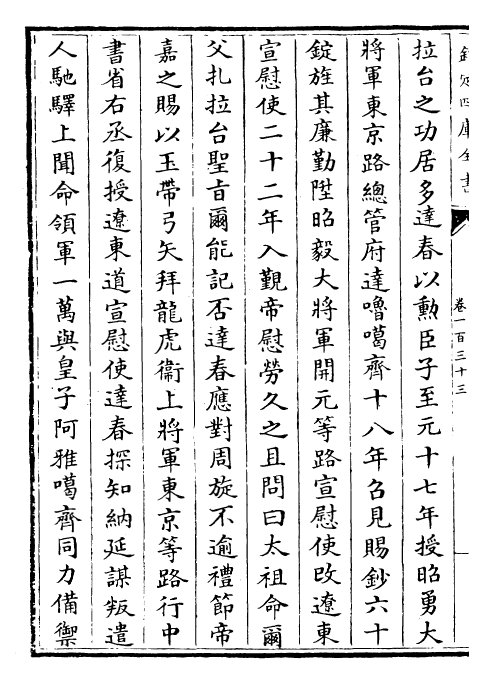 欽定四庫全書
卷一百三十三
拉台之功居多達春以勲臣子至元十七年授昭勇大
將軍東京路總管府達嚕噶齊十八年召見賜鈔六十
錠旌其廉勤陞昭毅大將軍開元等路宣慰使改遼東
宣慰使二十二年入覲帝慰勞久之且問曰太祖命爾
父扎拉台聖旨爾能記否達春應對周旋不逾禮節帝
嘉之賜以玉帶弓矢拜龍虎衞上將軍東京等路行中
書省右丞復授遼東道宣慰使達春探知納延謀叛遣
人馳驛上聞命領軍一萬與皇子阿雅噶齊同力備禦